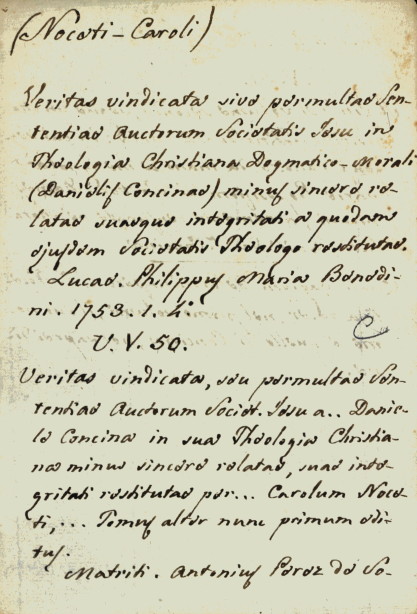 (Noceti-Caroli)
Veritas vindicata sive permultae Sen-
tentiae Auctorum Societatis Jesu in
Theologia Christiana Dogmatico-Morali
(Danielis Concinae) minus sincere re-
latae suaeque integritati a quodam
ejusdem Societatis Theologo restitutae.
Lucae. Philippus Maria Benedi-
ni. 1753. 1. 4º
U. V. 50.
Veritas vindicata, seu permultae Sen-
tentiae Auctorum Societ. Jesu a.. Danie-
le Concina in sua Theologia Christia-
na minus sincere relatae, suae inte-
gritati restitutae per... Carolum Noce-
ti,... Tomus alter nunc primum edi-
tus.
Matriti. Antonius Perez de So-